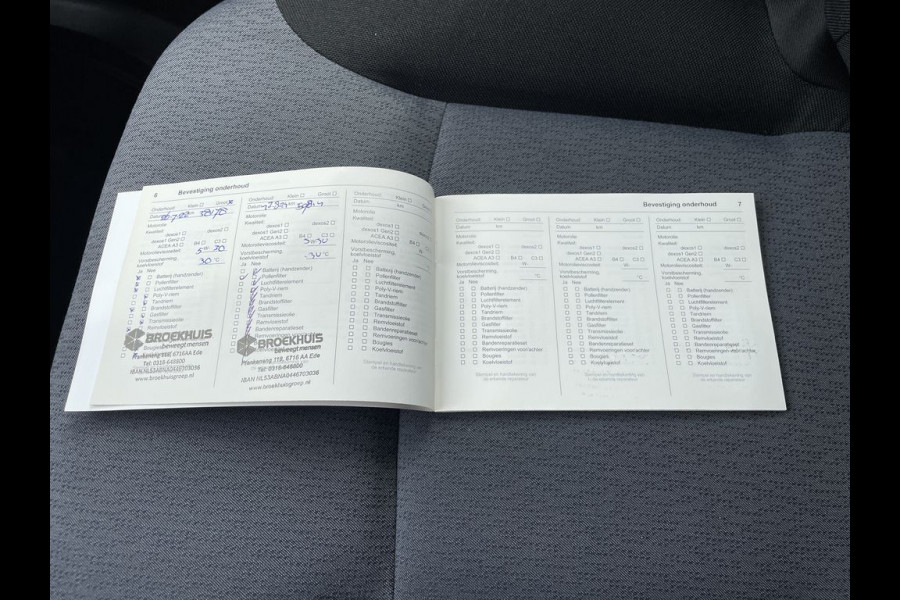 6 Bevestiging onderhoud
Onderhoud: Klein Groot
Datum
Motorolie:
Kwaliteit:
dexos1
dexos1 Gen2
ACEA A3 B4 C3
Motorolieviscositeit
Vorstbescherming, koelvloeistof 30 °C
Ja Nee
Batterij (handzender)
Pollenfilter
Luchtfilterelement
Poly-V-riem
Tandriem
Brandstoffilter
Gasfilter
Transmissieolie
Remvloeistof
BROEKHUIS
beweegt mensen
Frankeneng 118, 6716AA Ede
Tel: 0318-648800
www.broekhuisgroep.nl
Onderhoud: Klein Groot
Datum
Motorolie:
Kwaliteit:
dexos1 dexos2
dexos1 Gen2
ACEA A3 B4 C3
Motorolieviscositeit
Vorstbescherming,
koelvloeistof
Ja Nee
Batterij (handzender)
Pollenfilter
Luchtfilterelement
Poly-V-riem
Tandriem
Brandstoffilter
Gasfilter
Transmissieolie
Remvloeistof
Bandenreparatieset
BROEKHUIS
beweegt mensen
Frankeneng 118, 6716 AA Ede
Tel: 0318-648800
IBAN NL53ABNA0446703036
www.broekhuisgroep.nl
Onderhoud: Klein Groot
Datum km
Motorolie:
Kwaliteit:
dexos1
dexos1 Gen2
ACEA A3 B4
Motorolieviscositeit
Vorstbescherming,
koelvloeistof
Ja Nee
Batterij (handzender)
Pollenfilter
Luchtfilterelement
Poly-V-riem
Tandriem
Brandstoffilter
Gasfilter
Transmissieolie
Remvloeistof
Bandenreparatieset
Remvoeringen
Bougies
Koelvloeistof
Stempel en handtekening van
de erkende reparateur
Bevestiging onderhoud 7
Onderhoud: Klein Groot
Datum km
Motorolie:
Kwaliteit:
dexos1 dexos2
dexos1 Gen2
ACEA A3 B4 C3
Motorolieviscositeit -W-
Vorstbescherming,
koelvloeistof °C
Ja Nee
Batterij (handzender)
Pollenfilter
Luchtfilterelement
Poly-V-riem
Tandriem
Brandstoffilter
Gasfilter
Transmissieolie
Remvloeistof
Bandenreparatieset
Remvoeringen voor/achter
Bougies
Koelvloeistof
Stempel en handtekening van
de erkende reparateur
Onderhoud: Klein Groot
Datum km
Motorolie:
Kwaliteit:
dexos1 dexos2
dexos1 Gen2
ACEA A3 B4 C3
Motorolieviscositeit -W-
Vorstbescherming,
koelvloeistof °C
Ja Nee
Batterij (handzender)
Pollenfilter
Luchtfilterelement
Poly-V-riem
Tandriem
Brandstoffilter
Gasfilter
Transmissieolie
Remvloeistof
Bandenreparatieset
Remvoeringen voor/achter
Bougies
Koelvloeistof
Stempel en handtekening van
de erkende reparateur
Onderhoud: Klein Groot
Datum km
Motorolie:
Kwaliteit:
dexos1 dexos2
dexos1 Gen2
ACEA A3 B4 C3
Motorolieviscositeit -W-
Vorstbescherming,
koelvloeistof °C
Ja Nee
Batterij (handzender)
Pollenfilter
Luchtfilterelement
Poly-V-riem
Tandriem
Brandstoffilter
Gasfilter
Transmissieolie
Remvloeistof
Bandenreparatieset
Remvoeringen voor/achter
Bougies
Koelvloeistof
Stempel en handtekening van
de erkende reparateur